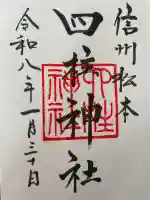 信州松本
四柱神社
令和八年一月三十日